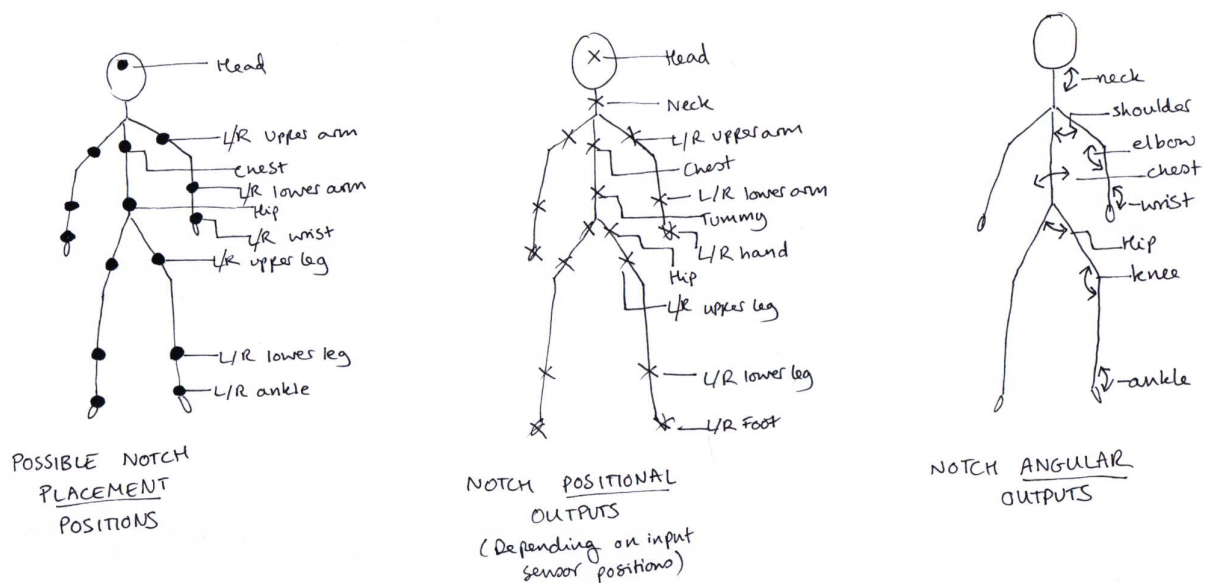 Head
L/R upper arm
Chest
L/R lower arm
Hip
L/R wrist
L/R upper leg
L/R lower leg
L/R ankle
POSSIBLE NOTCH
PLACEMENT
POSITIONS
Head
Neck
L/R upper arm
Chest
L/R lower arm
Tummy
L/R hand
Hip
L/R upper leg
L/R lower leg
L/R Foot
NOTCH POSITIONAL
OUTPUTS
(Depending on input
sensor positions)
neck
shoulder
elbow
chest
wrist
Hip
knee
ankle
NOTCH ANGULAR
OUTPUTS